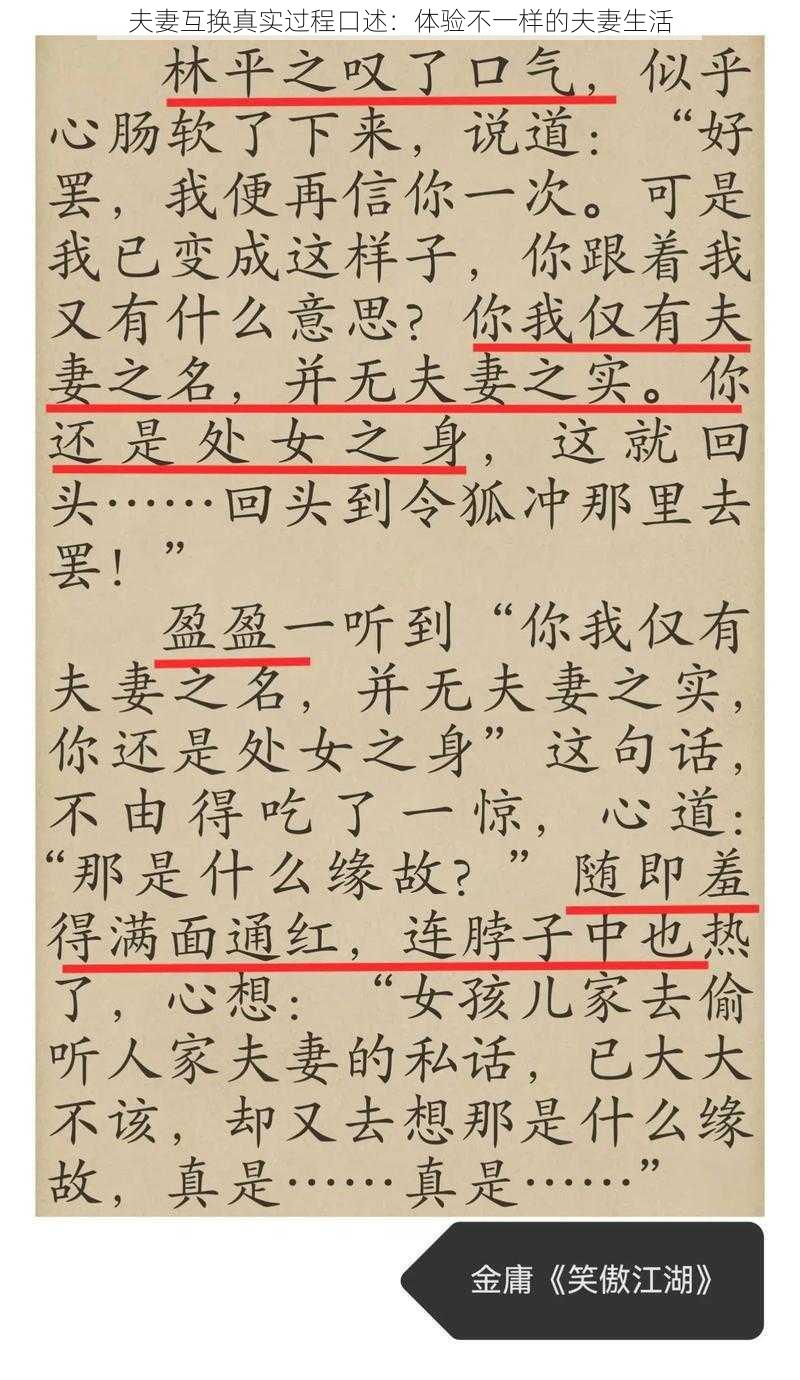 夫妻互换真实过程口述：体验不一样的夫妻生活
林平之叹了口气，似乎
心肠软了下来，说道：“好
罢，我便再信你一次。可是
我已变成这样子，你跟着我
又有什么意思？你我仅有夫
妻之名，并无夫妻之实。你
还是处女之身，这就回
头……回头到令狐冲那里去
罢！”
盈盈一听到“你我仅有
夫妻之名，并无夫妻之实，
你还是处女之身”这句话，
不由得吃了一惊，心道：
“那是什么缘故？”随即羞
得满面通红，连脖子中也热
了，心想：“女孩儿家去偷
听人家夫妻的私话，已大大
不该，却又去想那是什么缘
故，真是……真是……”
金庸《笑傲江湖》